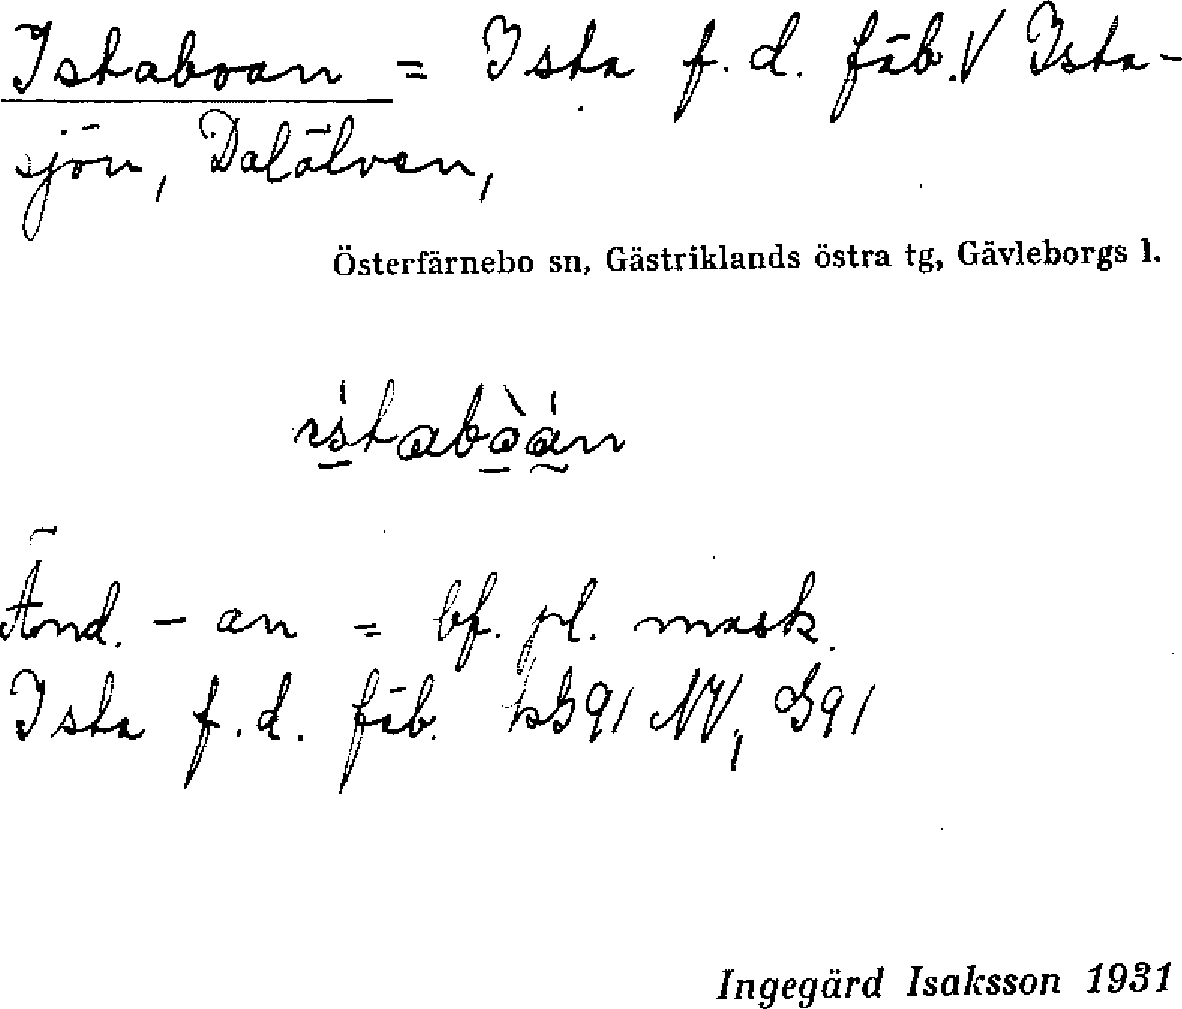 Istaboan = Ista f. d. fäb. V Ista-
sjön, Dalälven,
Österfärnebo sn, Gästriklands östra tg, Gävleborgs l.
Änd. - an = bf. pl. mask.
Ista f. d. fäb. G91 NV, G91
Ingegärd Isaksson 1931